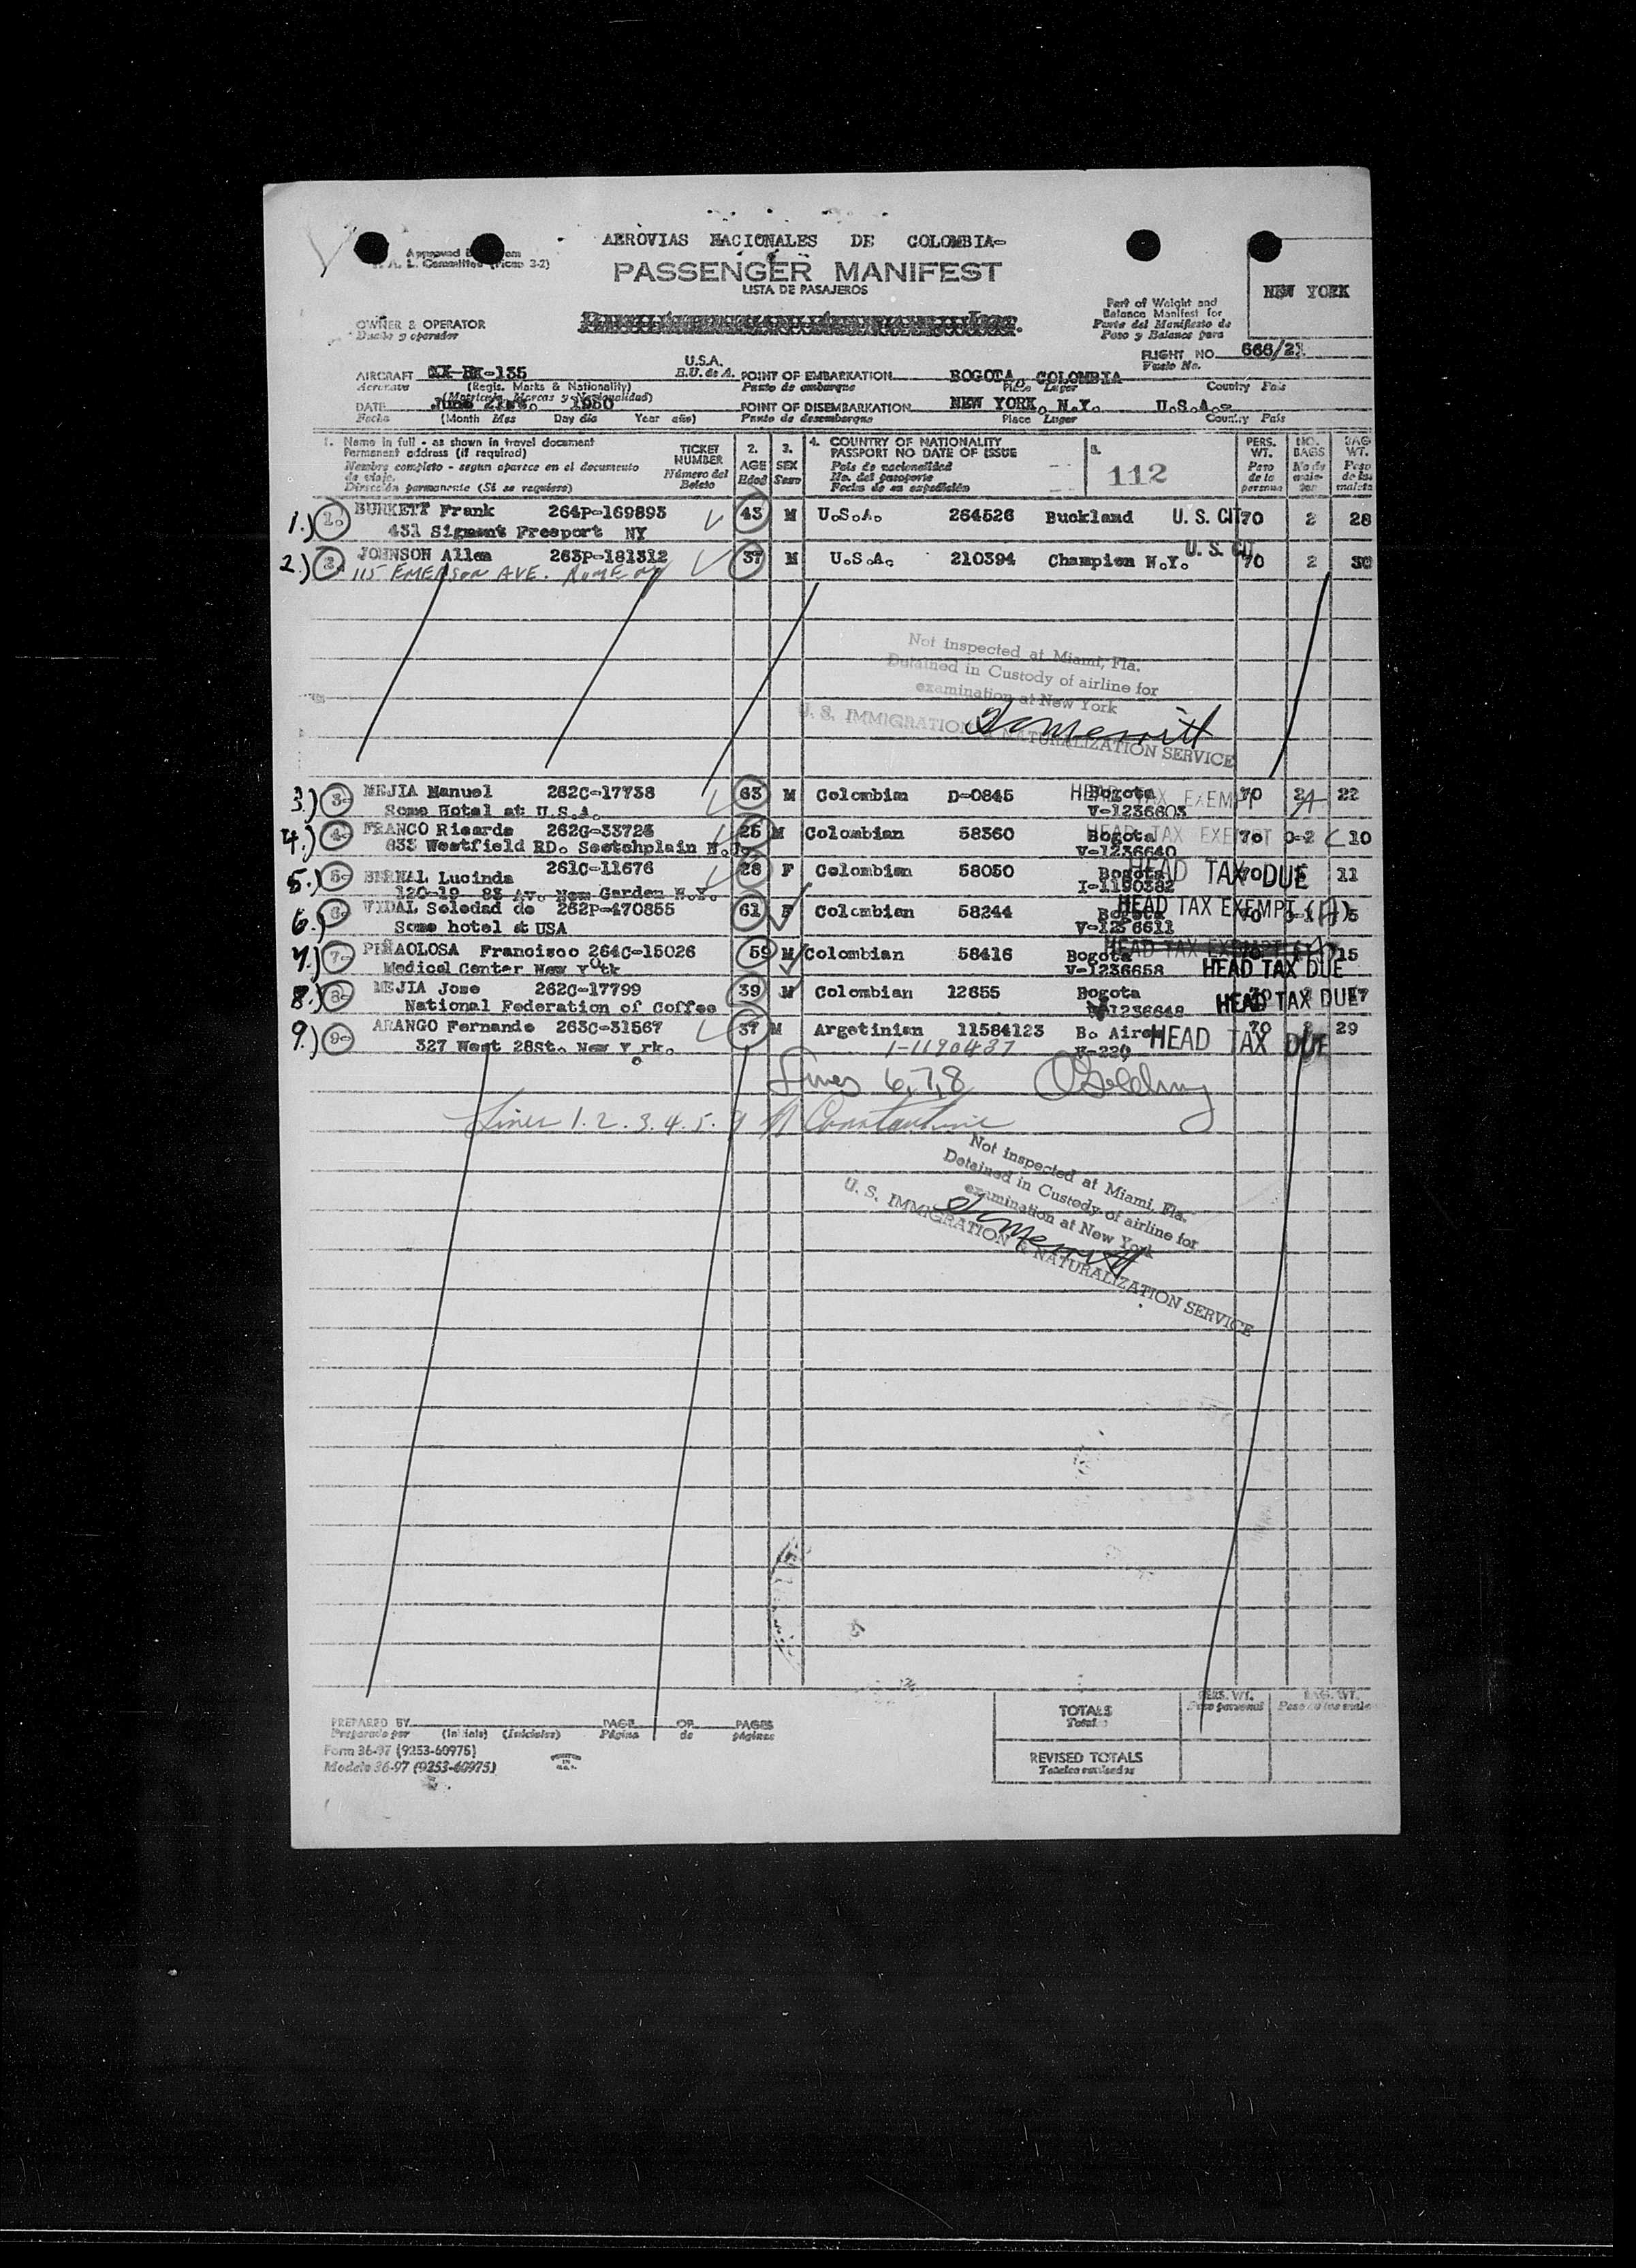 AEROVIAS NACIONALES DE COLOMBIA-
PASSENGER MANIFEST
LISTA DE PASAJEROS
NEW YORK
Part of Weight and
Balance Manifest for
Parte del Manifiesto de
Peso y Balance para
OWNER & OPERATOR
Dueño y operador
FLIGHT NO. 666/21
Vuelo No.
U.S.A.
E.U. de A.
AIRCRAFT HK-135
Aeronave
(Regis. Marks & Nationality)
(Matrícula, Marcas y Nacionalidad)
POINT OF EMBARKATION BOGOTA, COLOMBIA
Punto de embarque Place Lugar Country País
DATE June 21st. 1950
Fecha (Month Mes Day día Year año)
POINT OF DISEMBARKATION NEW YORK, N.Y. U.S.A.-
Punto de desembarque Place Lugar Country País
1. Name in full - as shown in travel document
Permanent address (if required)
Nombre completo - segun aparece en el documento
de viaje.
Dirección permanente (Si se requiere)
TICKET
NUMBER
Número del
Boleto
2.
AGE
Edad
3.
SEX
Sexo
4. COUNTRY OF NATIONALITY
PASSPORT NO DATE OF ISSUE
País de nacionalidad
No. del pasaporte
Fecha de su expedición
5.
112
PERS.
WT.
Peso
de la
persona
NO.
BAGS
No de
male-
tas
BAG
WT.
Peso
de las
maletas
1.) 1. BURKETT Frank 264P-169893 43 M U.S.A. 264526 Buckland U. S. CIT 70 2 28
431 Sigmont Freeport NY
2.) 2. JOHNSON Allen 263P-181312 37 M U.S.A. 210394 Champion N.Y. U. S. CIT. 70 2 30
115 EMERSON AVE. ROME NY
Not inspected at Miami, Fla.
Detained in Custody of airline for
examination at New York
U. S. IMMIGRATION & NATURALIZATION SERVICE
3.) 3- MEJIA Manuel 262C-17738 63 M Colombian D-0845 Bogota HEAD TAX EXEMPT 70 2 22
Some Hotel at U.S.A. V-1236603
4.) 4- FRANCO Ricardo 262G-33723 25 M Colombian 58360 Bogota HEAD TAX EXEMPT 70 0-2 10
833 Westfield RD. Scotchplain N.J. V-1236640
5.) 5- BERNAL Lucinda 261C-11676 28 F Colombian 58050 Bogota HEAD TAX DUE 70 11
120-19 83 Av. New Garden N.Y. I-1190382
6.) 6- VIDAL Soledad de 262P-470855 61 F Colombian 58244 Bogota HEAD TAX EXEMPT 70 5
Some hotel at USA
7.) 7- PIÑAOLOSA Francisco 264C-15026 59 M Colombian 58416 Bogota HEAD TAX EXEMPT 15
Medical Center New York V-1236658 HEAD TAX DUE
8.) 8- MEJIA Jose 262C-17799 39 M Colombian 12655 Bogota HEAD TAX DUE 70
National Federation of Coffee 1236648
9.) 9- ARANGO Fernando 263C-31567 37 M Argetinian 11584123 Bo. Aires HEAD TAX DUE 70 2 29
327 West 28St. New York. 1-1190437 V-220
Lines 6,7,8
Lines 1. 2. 3. 4. 5. 9 Constantine
Not inspected at Miami, Fla.
Detained in Custody of airline for
examination at New York
U. S. IMMIGRATION & NATURALIZATION SERVICE
PERS. WT. BAG. WT.
TOTALS
Totales
PREPARED BY PAGE OF PAGES
Preparado por (Initials) (Iniciales) Página de páginas
REVISED TOTALS
Form 36-97 (9253-60975)
Modelo 36-97 (9253-60975)
PRINTED
IN
U.S.A.